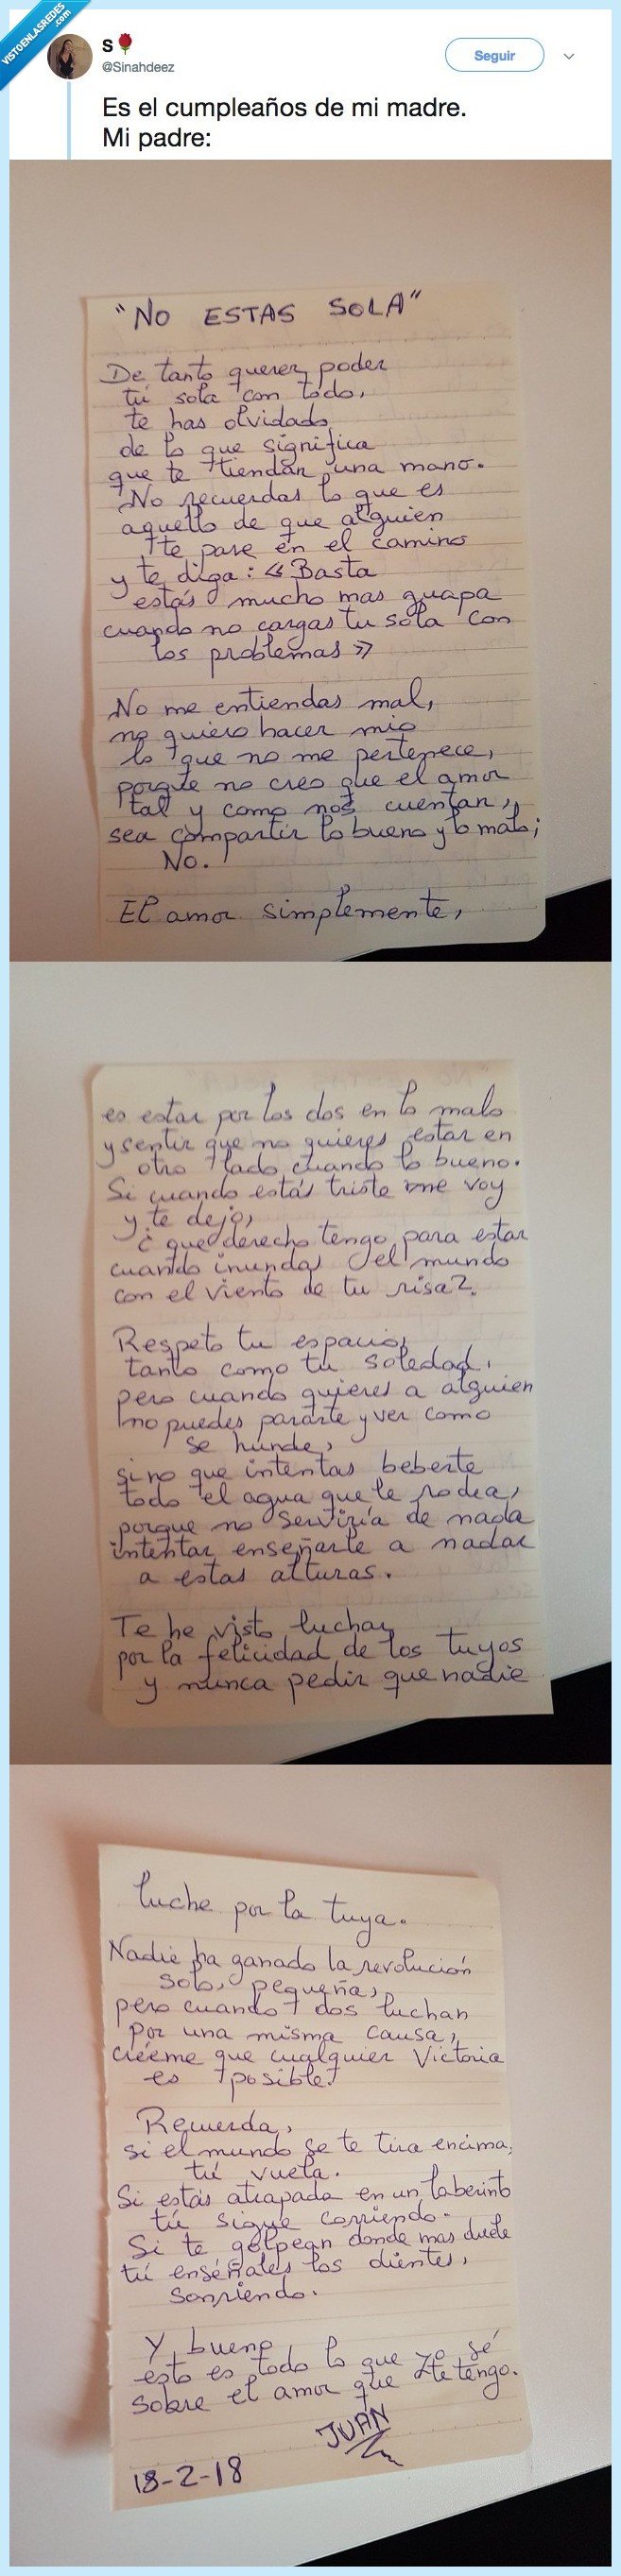 VISTOENLASREDES
.com
S🌹
@Sinahdeez
Seguir
Es el cumpleaños de mi madre.
Mi padre:
"NO ESTAS SOLA"
De tanto querer poder
tú sola con todo,
te has olvidado
de lo que significa
que te tiendan una mano.
No recuerdas lo que es
aquello de que alguien
te pare en el camino
y te diga: «Basta
estás mucho mas guapa
cuando no cargas tu sola con
los problemas»
No me entiendas mal,
no quiero hacer mio
lo que no me pertenece,
porque no creo que el amor
tal y como nos cuentan,
sea compartir lo bueno y lo malo;
No.
El amor simplemente,
es estar por los dos en lo malo
y sentir que no quieres estar en
otro lado cuando lo bueno.
Si cuando estás triste me voy
y te dejo,
¿que derecho tengo para estar
cuando inundas el mundo
con el viento de tu risa?.
Respeto tu espacio,
tanto como tu soledad,
pero cuando quieres a alguien
no puedes pararte y ver como
se hunde,
sino que intentas beberte
todo el agua que le rodea,
porque no serviría de nada
intentar enseñarle a nadar
a estas alturas.
Te he visto luchar
por la felicidad de los tuyos
y nunca pedir que nadie
luche por la tuya.
Nadie ha ganado la revolución
solo, pequeña,
pero cuando dos luchan
por una misma causa,
créeme que cualquier Victoria
es posible.
Recuerda,
si el mundo se te tira encima,
tú vuela.
Si estás atrapada en un laberinto
tú sigue corriendo.
Si te golpean donde mas duele
tú enséñales los dientes,
sonriendo.
Y bueno
esto es todo lo que yo sé
sobre el amor que te tengo.
JUAN
18-2-18